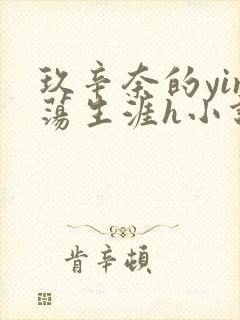 玖辛奈的yin
荡生涯h小
肯辛顿